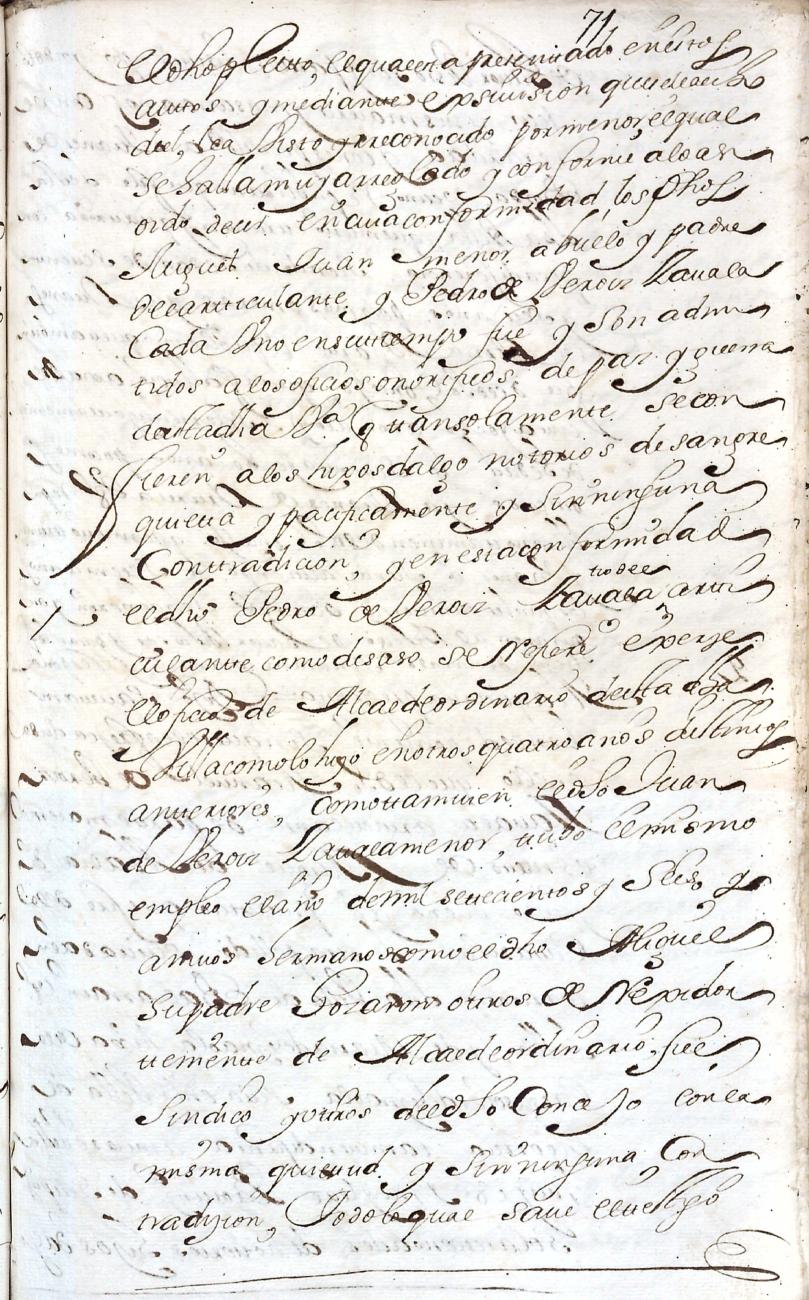 71
el dho pleito, el qual esta presentado en estos
autos y mediante exsivision que de el
del, le a visto y rreconocido por menor el qual
se halla muy arreglado y conforme a lo an
en cuia conformidad los dhos
Miguel Juan menor abuelo y padre
del articulante y Pedro de Veroiz Zavala
Cada Uno en su tiempo fue y son admi
tidos a los oficios onorificos de paz y guerra
de esta dha Va que tan solamente se con
fieren a los hixos dalgo notorios de sangre
quieta y pacificamente y sin ninguna
Contradicion, y en esta conformidad
el dho Pedro de Veroiz Zavala tio de el arti
culante como de suso se refiere exerze
el oficio de Alcalde ordinario de esta dha
Villa como lo hizo en otros quatro años distintos
anteriores, Como tamvien el dho Juan
de Veroiz Zavala menor, tubo el mismo
empleo el año de mil setecientos y seis, y
amvos hermanos como el dho Miguel
su padre Gozaron otros de Rexidor
temente de Alcalde ordinario, fiel
Sindico y otros de el dho Concejo con la
misma quietud y sin ninguna Con
tradizion, Todo lo qual save el testigo